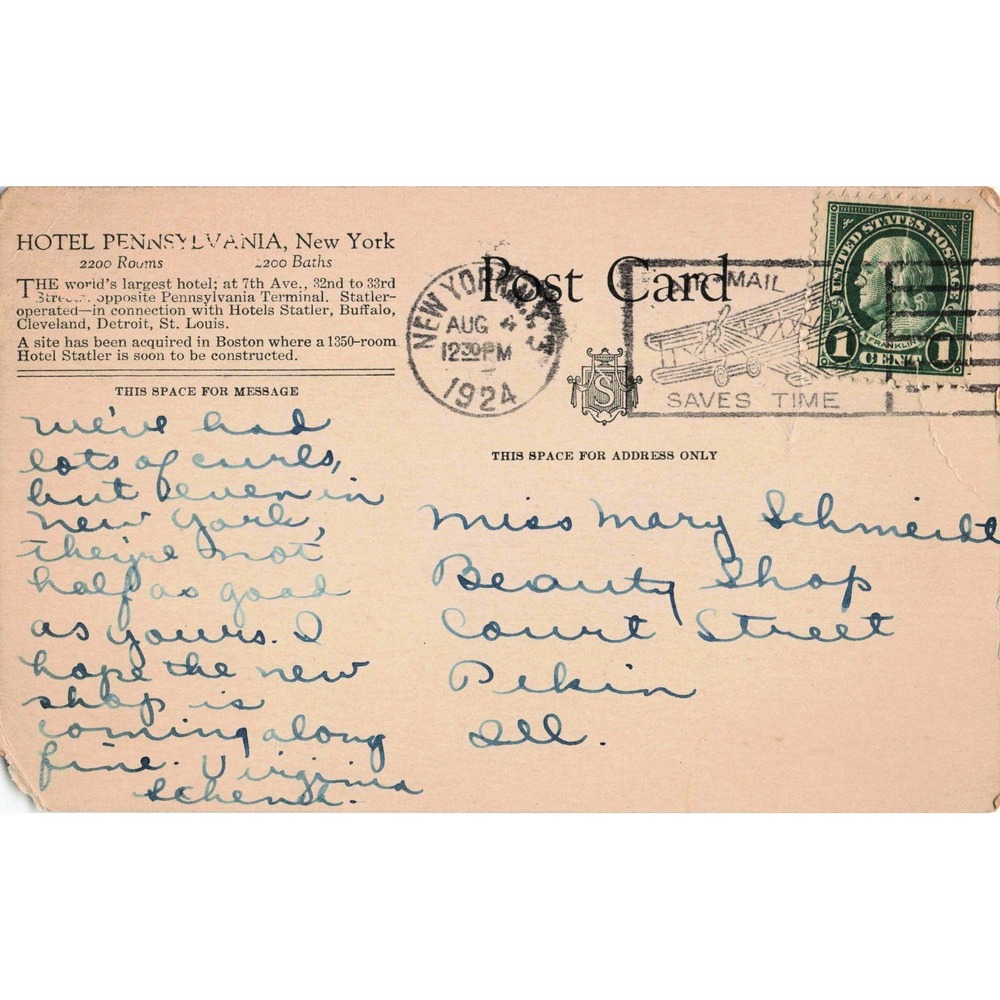 HOTEL PENNSYLVANIA, New York
2200 Rooms 2200 Baths
THE world's largest hotel; at 7th Ave., 32nd to 33rd
Streets. opposite Pennsylvania Terminal. Statler-
operated—in connection with Hotels Statler, Buffalo,
Cleveland, Detroit, St. Louis.
A site has been acquired in Boston where a 1350-room
Hotel Statler is soon to be constructed.
THIS SPACE FOR MESSAGE
We've had
lots of curls,
but even in
New York,
they're not
half as good
as yours. I
hope the new
shop is
coming along
fine. Virginia
Schenk.
Post Card
NEW YORK, N.Y.
AUG 4
1230PM
1924
AIR MAIL
SAVES TIME
UNITED STATES POSTAGE
FRANKLIN
1 CENT 1
S
THIS SPACE FOR ADDRESS ONLY
Miss Mary Schmeidt
Beauty Shop
Court Street
Pekin
Ill.